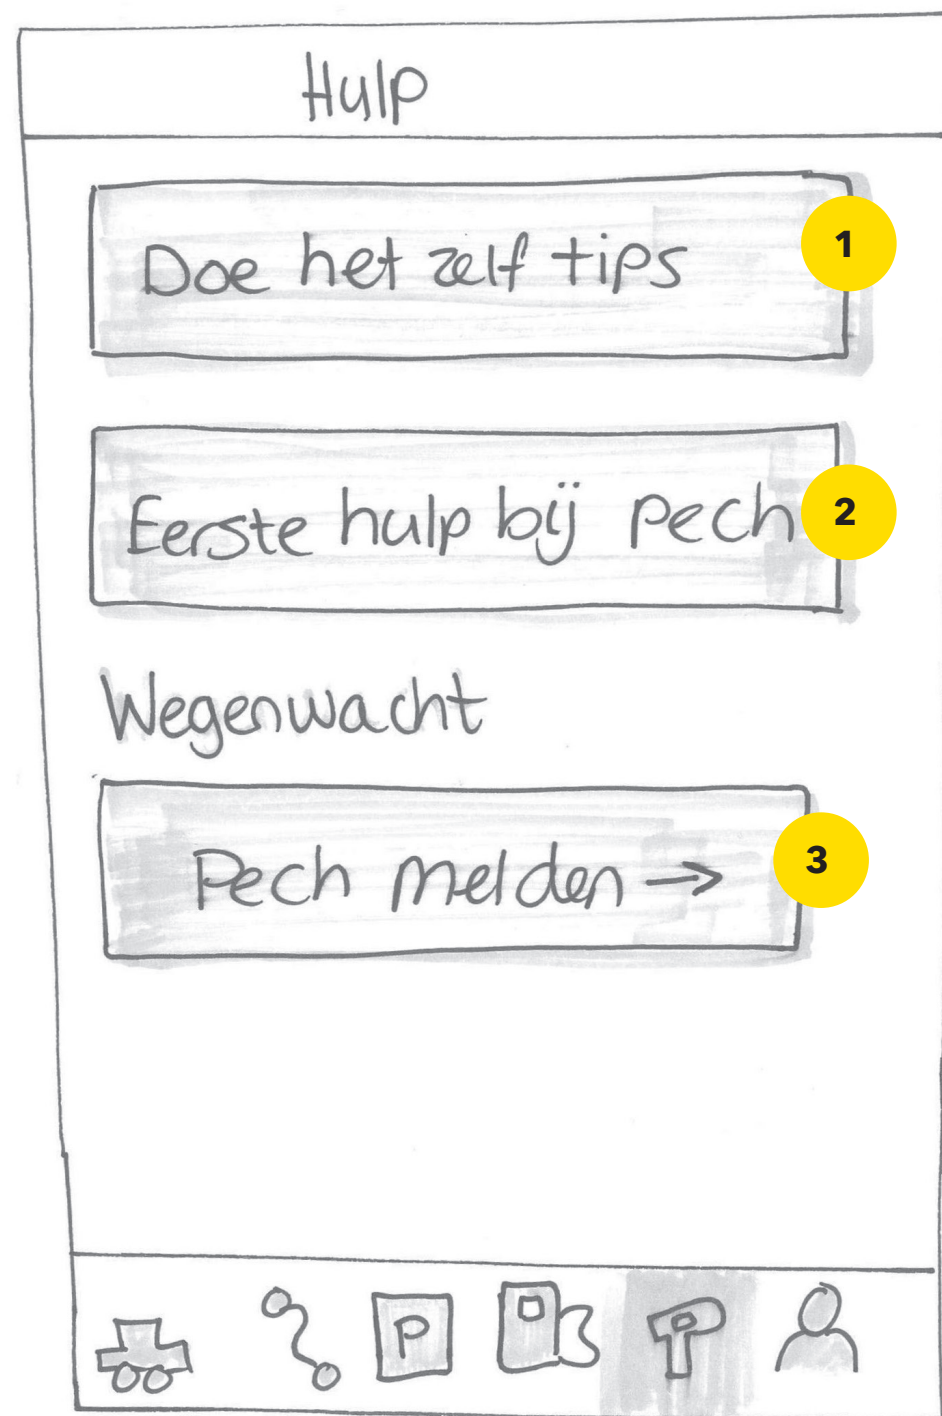 Hulp
Doe het zelf tips
1
Eerste hulp bij pech
2
Wegenwacht
Pech melden →
3
P